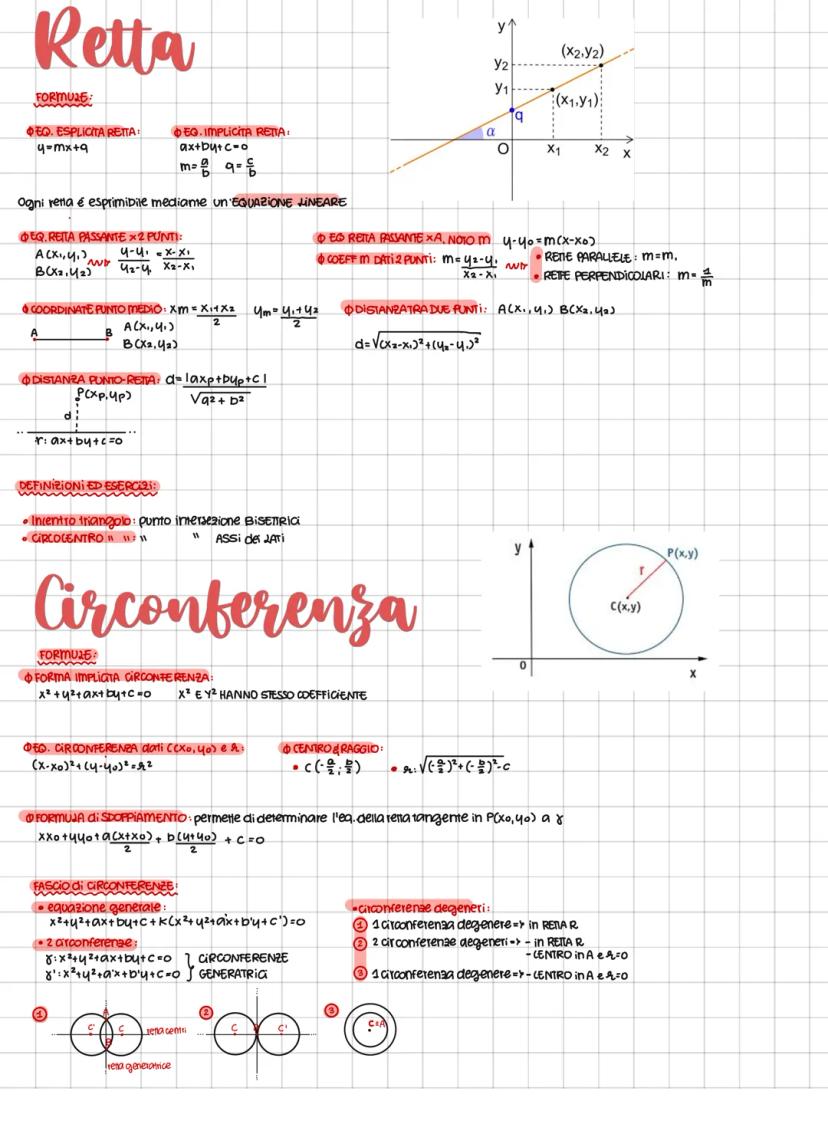 Retta
y
(x₂,y₂)
y₂
y₁
(x₁,y₁)
q
α
O
x₁
x₂
x
FORMULE:
EQ. ESPLICITA RETTA:
y=mx+q
EQ. IMPLICITA RETTA:
ax+by+c=0
m=a/b q=c/b
Ogni retta é esprimibile mediante un'EQUAZIONE LINEARE
EQ. RETTA PASSANTE x 2 PUNTI:
A(x₁,y₁)
B(x₂,y₂)
y-y₁/y₂-y₁ = x-x₁/x₂-x₁
EQ RETTA PASSANTE x A, NOTO m y-y₀=m(x-x₀)
COEFF m DATI 2 PUNTI: m=y₂-y₁/x₂-x₁
• RETTE PARALLELE: m=m₁
• RETTE PERPENDICOLARI: m=1/m
COORDINATE PUNTO MEDIO: xm=x₁+x₂/2 ym=y₁+y₂/2
A B
A(x₁,y₁)
B(x₂,y₂)
DISTANZA TRA DUE PUNTI: A(x₁,y₁) B(x₂,y₂)
d=√(x₂-x₁)²+(y₂-y₁)²
DISTANZA PUNTO-RETTA: d=|axp+byp+c|/√a²+b²
P(xp,yp)
d
r: ax+by+c=0
DEFINIZIONI ED ESERCIZI:
• Incentro triangolo: punto intersezione BISETTRICI
• CIRCOCENTRO " ": " " ASSI dei LATI
Circonferenza
y
P(x,y)
r
C(x,y)
0
x
FORMULE:
FORMA IMPLICITA CIRCONFERENZA:
x²+y²+ax+by+c=0 x² E Y² HANNO STESSO COEFFICIENTE
EQ. CIRCONFERENZA dati C(x₀,y₀) e r:
(x-x₀)²+(y-y₀)²=r²
CENTRO & RAGGIO:
• C(-a/2;b/2) • r:√(-a/2)²+(-b/2)²-c
FORMULA di SDOPPIAMENTO: permette di determinare l'eq. della retta tangente in P(x₀,y₀) a γ
xx₀+yy₀+a(x+x₀)/2 + b(y+y₀)/2 + c=0
FASCIO di CIRCONFERENZE:
• equazione generale:
x²+y²+ax+by+c+k(x²+y²+a'x+b'y+c')=0
• 2 circonferenze:
γ: x²+y²+ax+by+c=0
γ': x²+y²+a'x+b'y+c=0
} CIRCONFERENZE GENERATRICI
• circonferenze degeneri:
① 1 circonferenza degenere=> in RETTA R
② 2 circonferenze degeneri=> - in RETTA R
- CENTRO in A e r=0
③ 1 circonferenza degenere=> -CENTRO in A e r=0
①
A
C' C
B
retta centri
retta generatrice
②
C C'
③
C=A